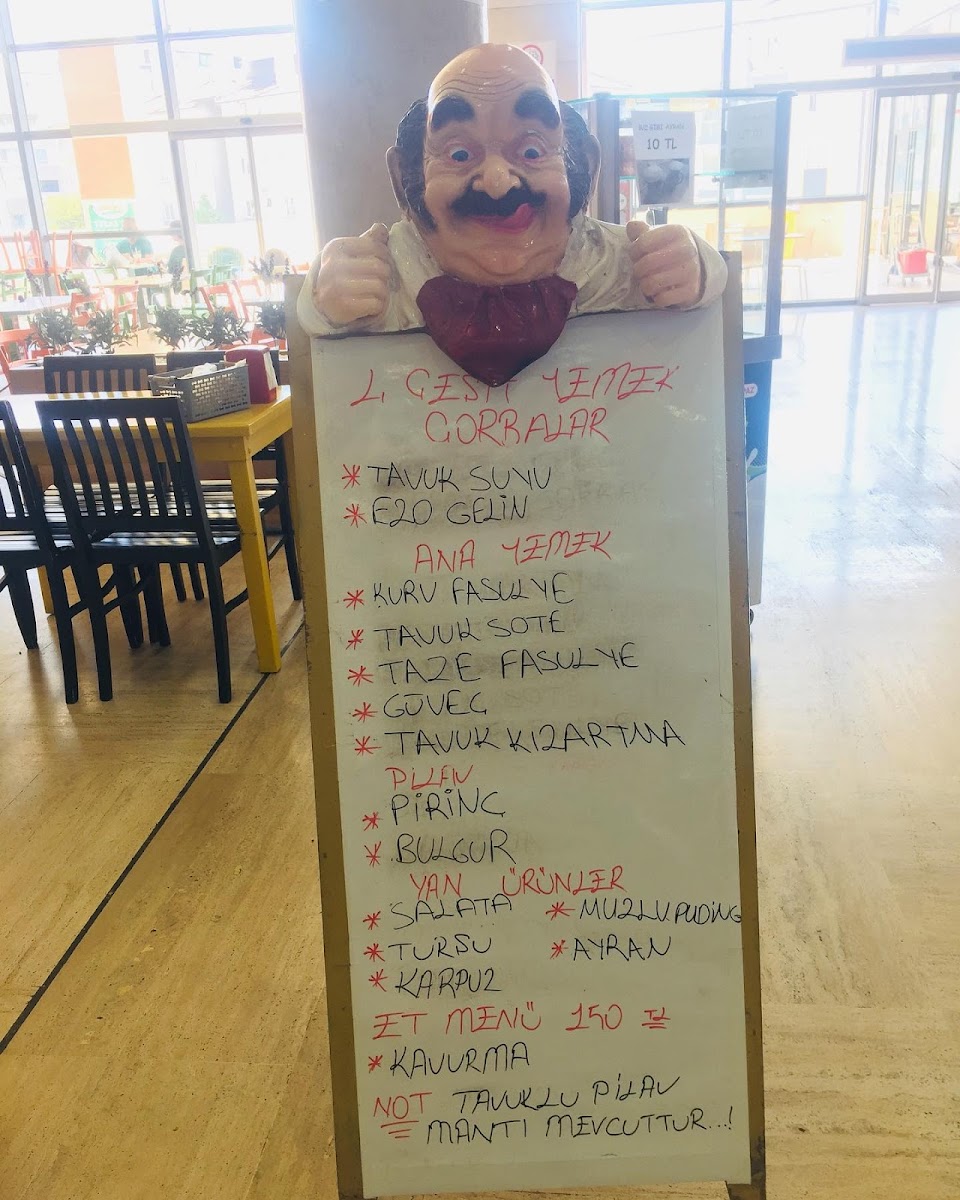 10 TL
4 ÇEŞİT YEMEK
ÇORBALAR
* TAVUK SUYU
* EZO GELİN
ANA YEMEK
* KURU FASULYE
* TAVUK SOTE
* TAZE FASULYE
* GÜVEÇ
* TAVUK KIZARTMA
PİLAV
* PİRİNÇ
* BULGUR
YAN ÜRÜNLER
* SALATA * MUZLU PUDİNG
* TURŞU * AYRAN
* KARPUZ
ET MENÜ 150 TL
* KAVURMA
NOT TAVUKLU PİLAV
MANTI MEVCUTTUR...!